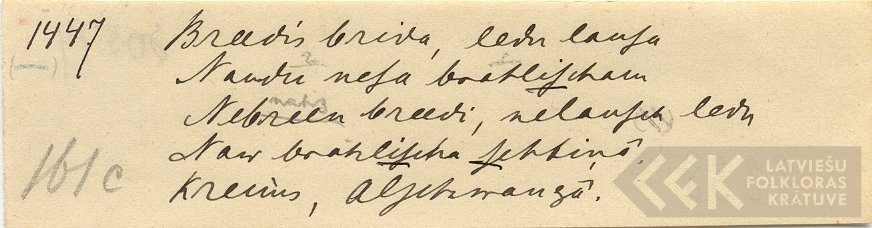 1447 Breedis brida, ledu lausa
Naudu nesa brahlischam
Nebreen breedi, nelausch ledu
Naw brahlischa sehtinâ.
161c
Kreiins, Alschwangâ.
LATVIEŠU
FOLKLORAS
KRĀTUVE